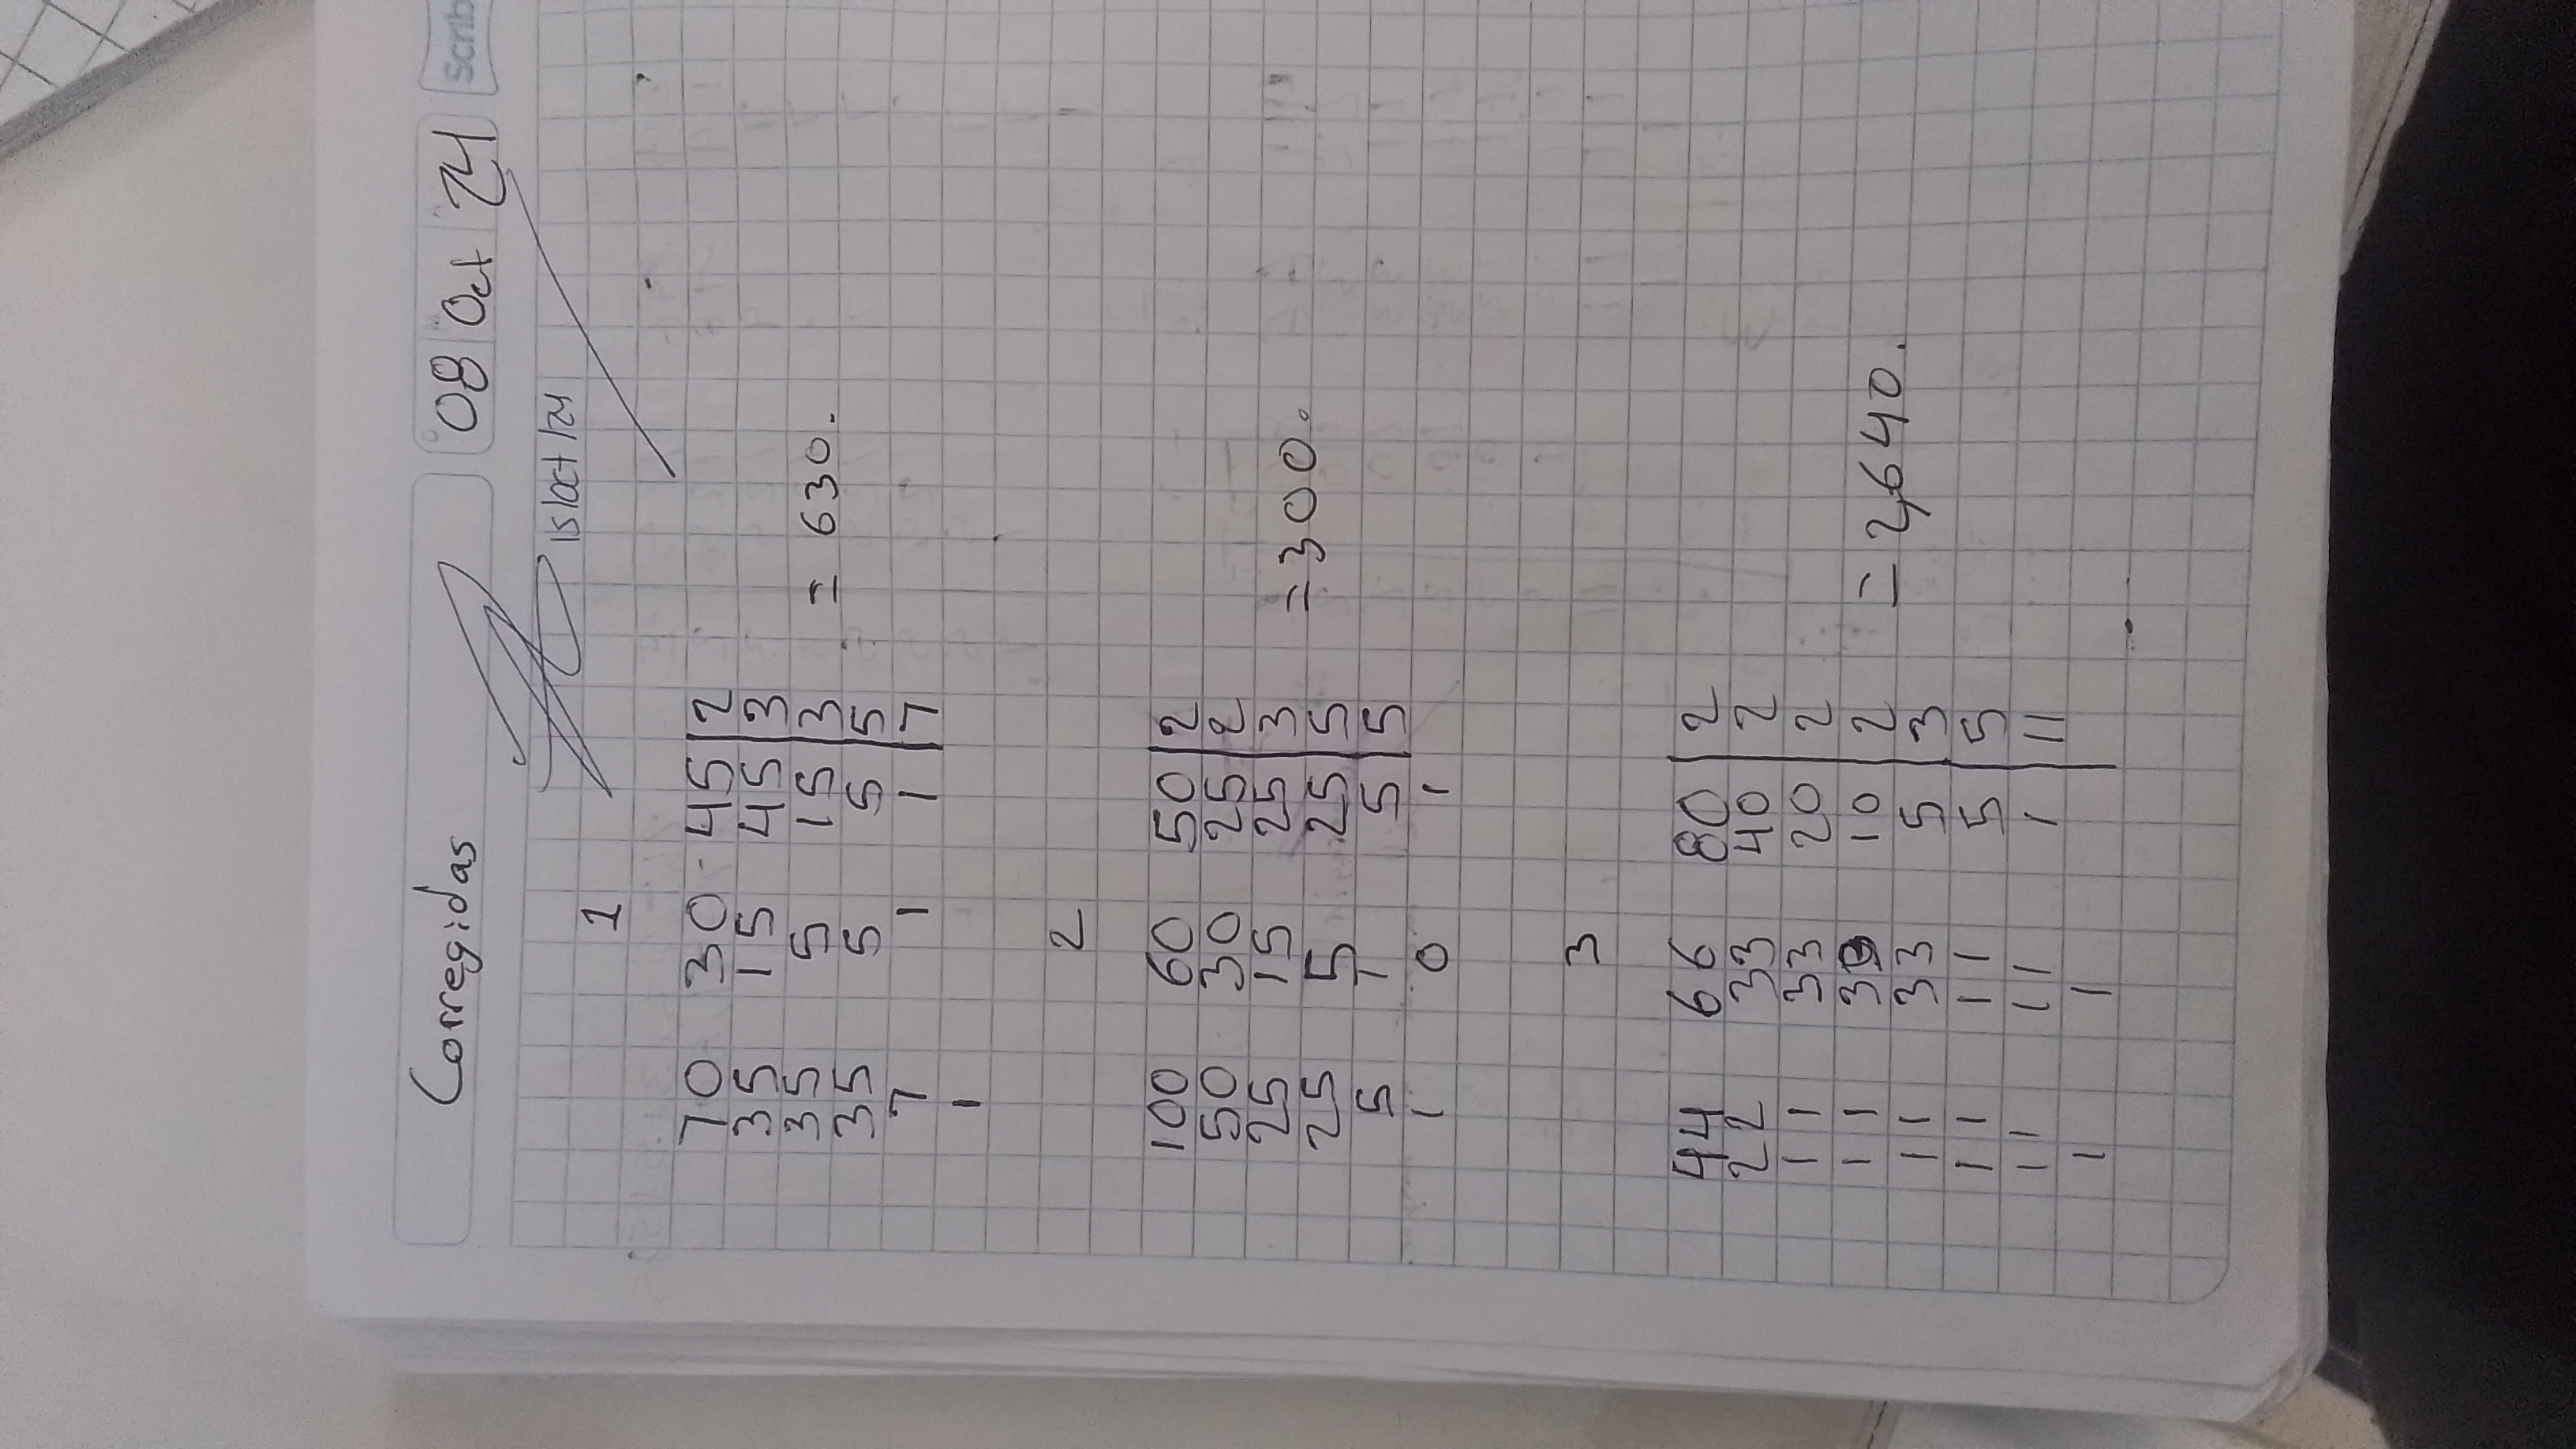 Corregidas 08 Oct 24 Scrib
15/oct/24
1
70 30 45 2
35 15 45 3
35 5 15 3 = 630.
35 5 5 5
7 1 1 7
1
2
100 60 50 2
50 30 25 2
25 15 25 3 = 300.
25 5 25 5
5 1 5 5
1 0 1
3
44 66 80 2
22 33 40 2
11 33 20 2
11 33 10 2 = 2,640.
11 33 5 3
11 11 5 5
11 11 1 11
1 1